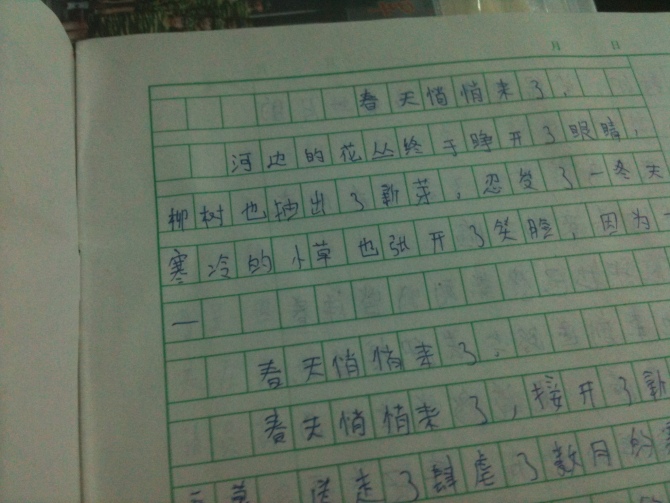 月 日
春天悄悄来了.
河边的花丛终于睁开了眼睛,
柳树也抽出了新芽,忍受了一冬天
寒冷的小草也张开了笑脸,因为
一
春天悄悄来了.
春天悄悄来了,接开了新
送走了肆虐了数月的